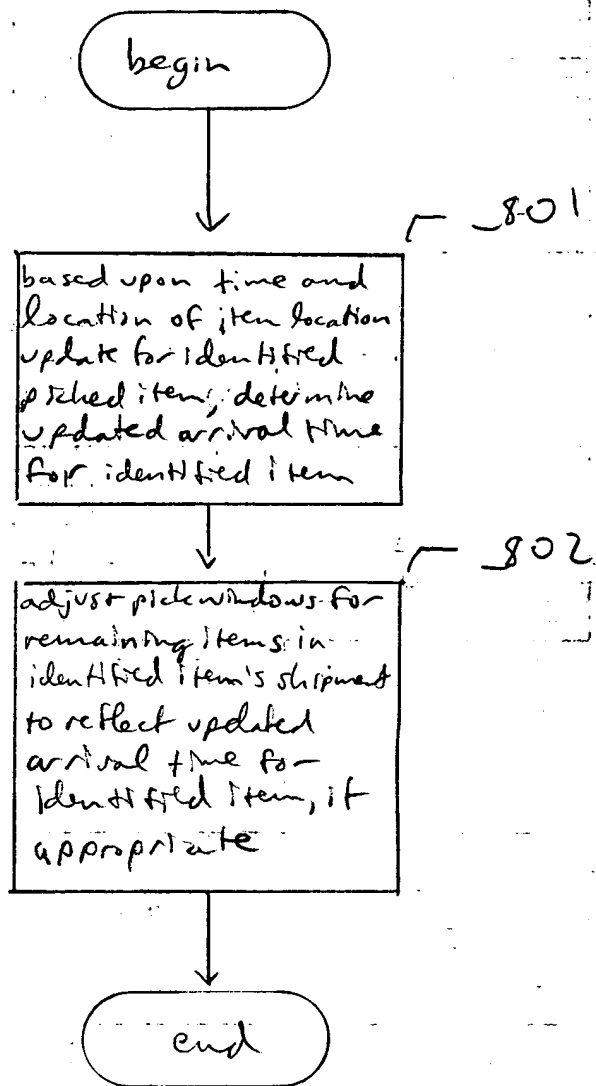 begin
801
based upon time and
location of item location
update for identified
picked item, determine
updated arrival time
for identified item
802
adjust pick windows for
remaining items in
identified item's shipment
to reflect updated
arrival time for
identified item, if
appropriate
end